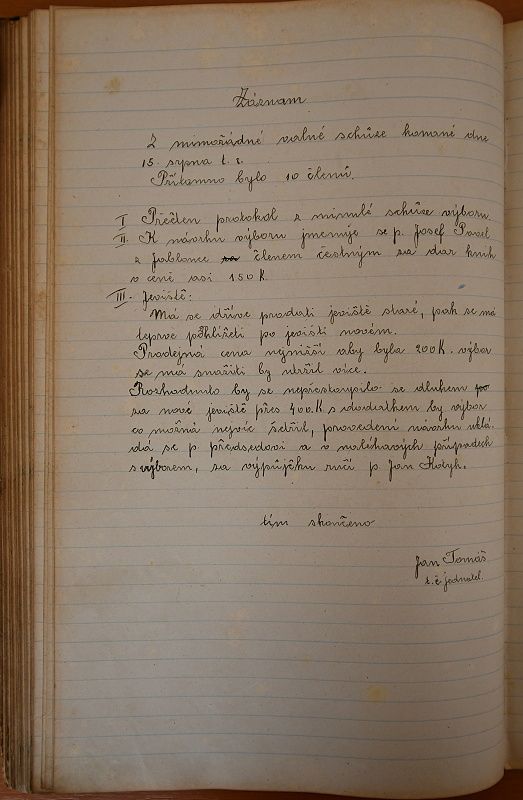 Záznam
Z mimořádné valné schůze konané dne
15. srpna t. r.
Přítomno bylo 10 členů.
I Přečten protokol z minulé schůze výboru.
II. K návrhu výboru jmenuje se p. Josef Pavel
z Jablonce členem čestným za dar knih
v ceně asi 150 K.
III. Jeviště:
Má se dříve prodati jeviště staré, pak se má
teprve pohlížeti po jevišti novém.
Prodejná cena nejnižší aby byla 200 K. výbor
se má snažiti by utržil více.
Rozhodnuto by se nepřestoupilo se dluhem
za nové jeviště přes 400 K s dodatkem by výbor
co možná nejvíc šetřil, provedení návrhu uklá-
dá se p předsedovi a v naléhavých případech
s výborem, za výpůjčku ručí p Jan Kotyk.
tím skončeno
Jan Tomáš
t. č. jednatel.